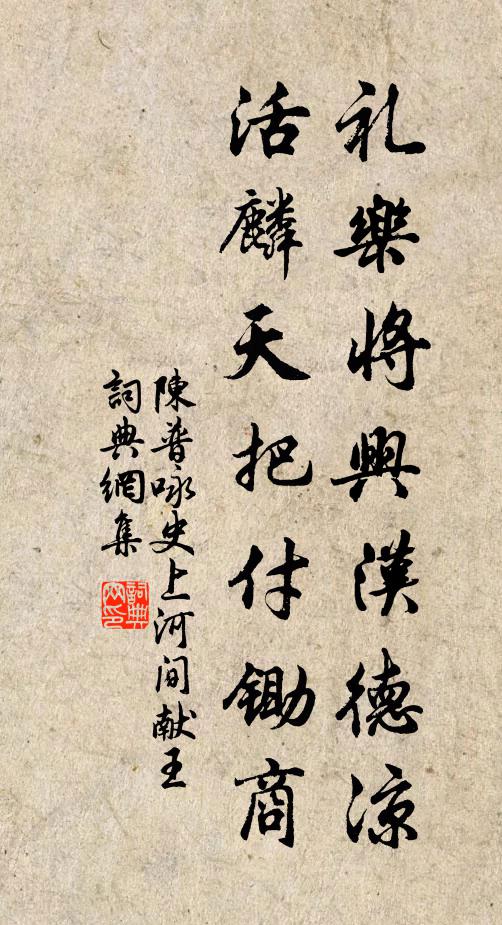 礼樂將興漢德涼
活麟天把付鋤商
陳普咏史上河间献王
詞典網集
詞典网印